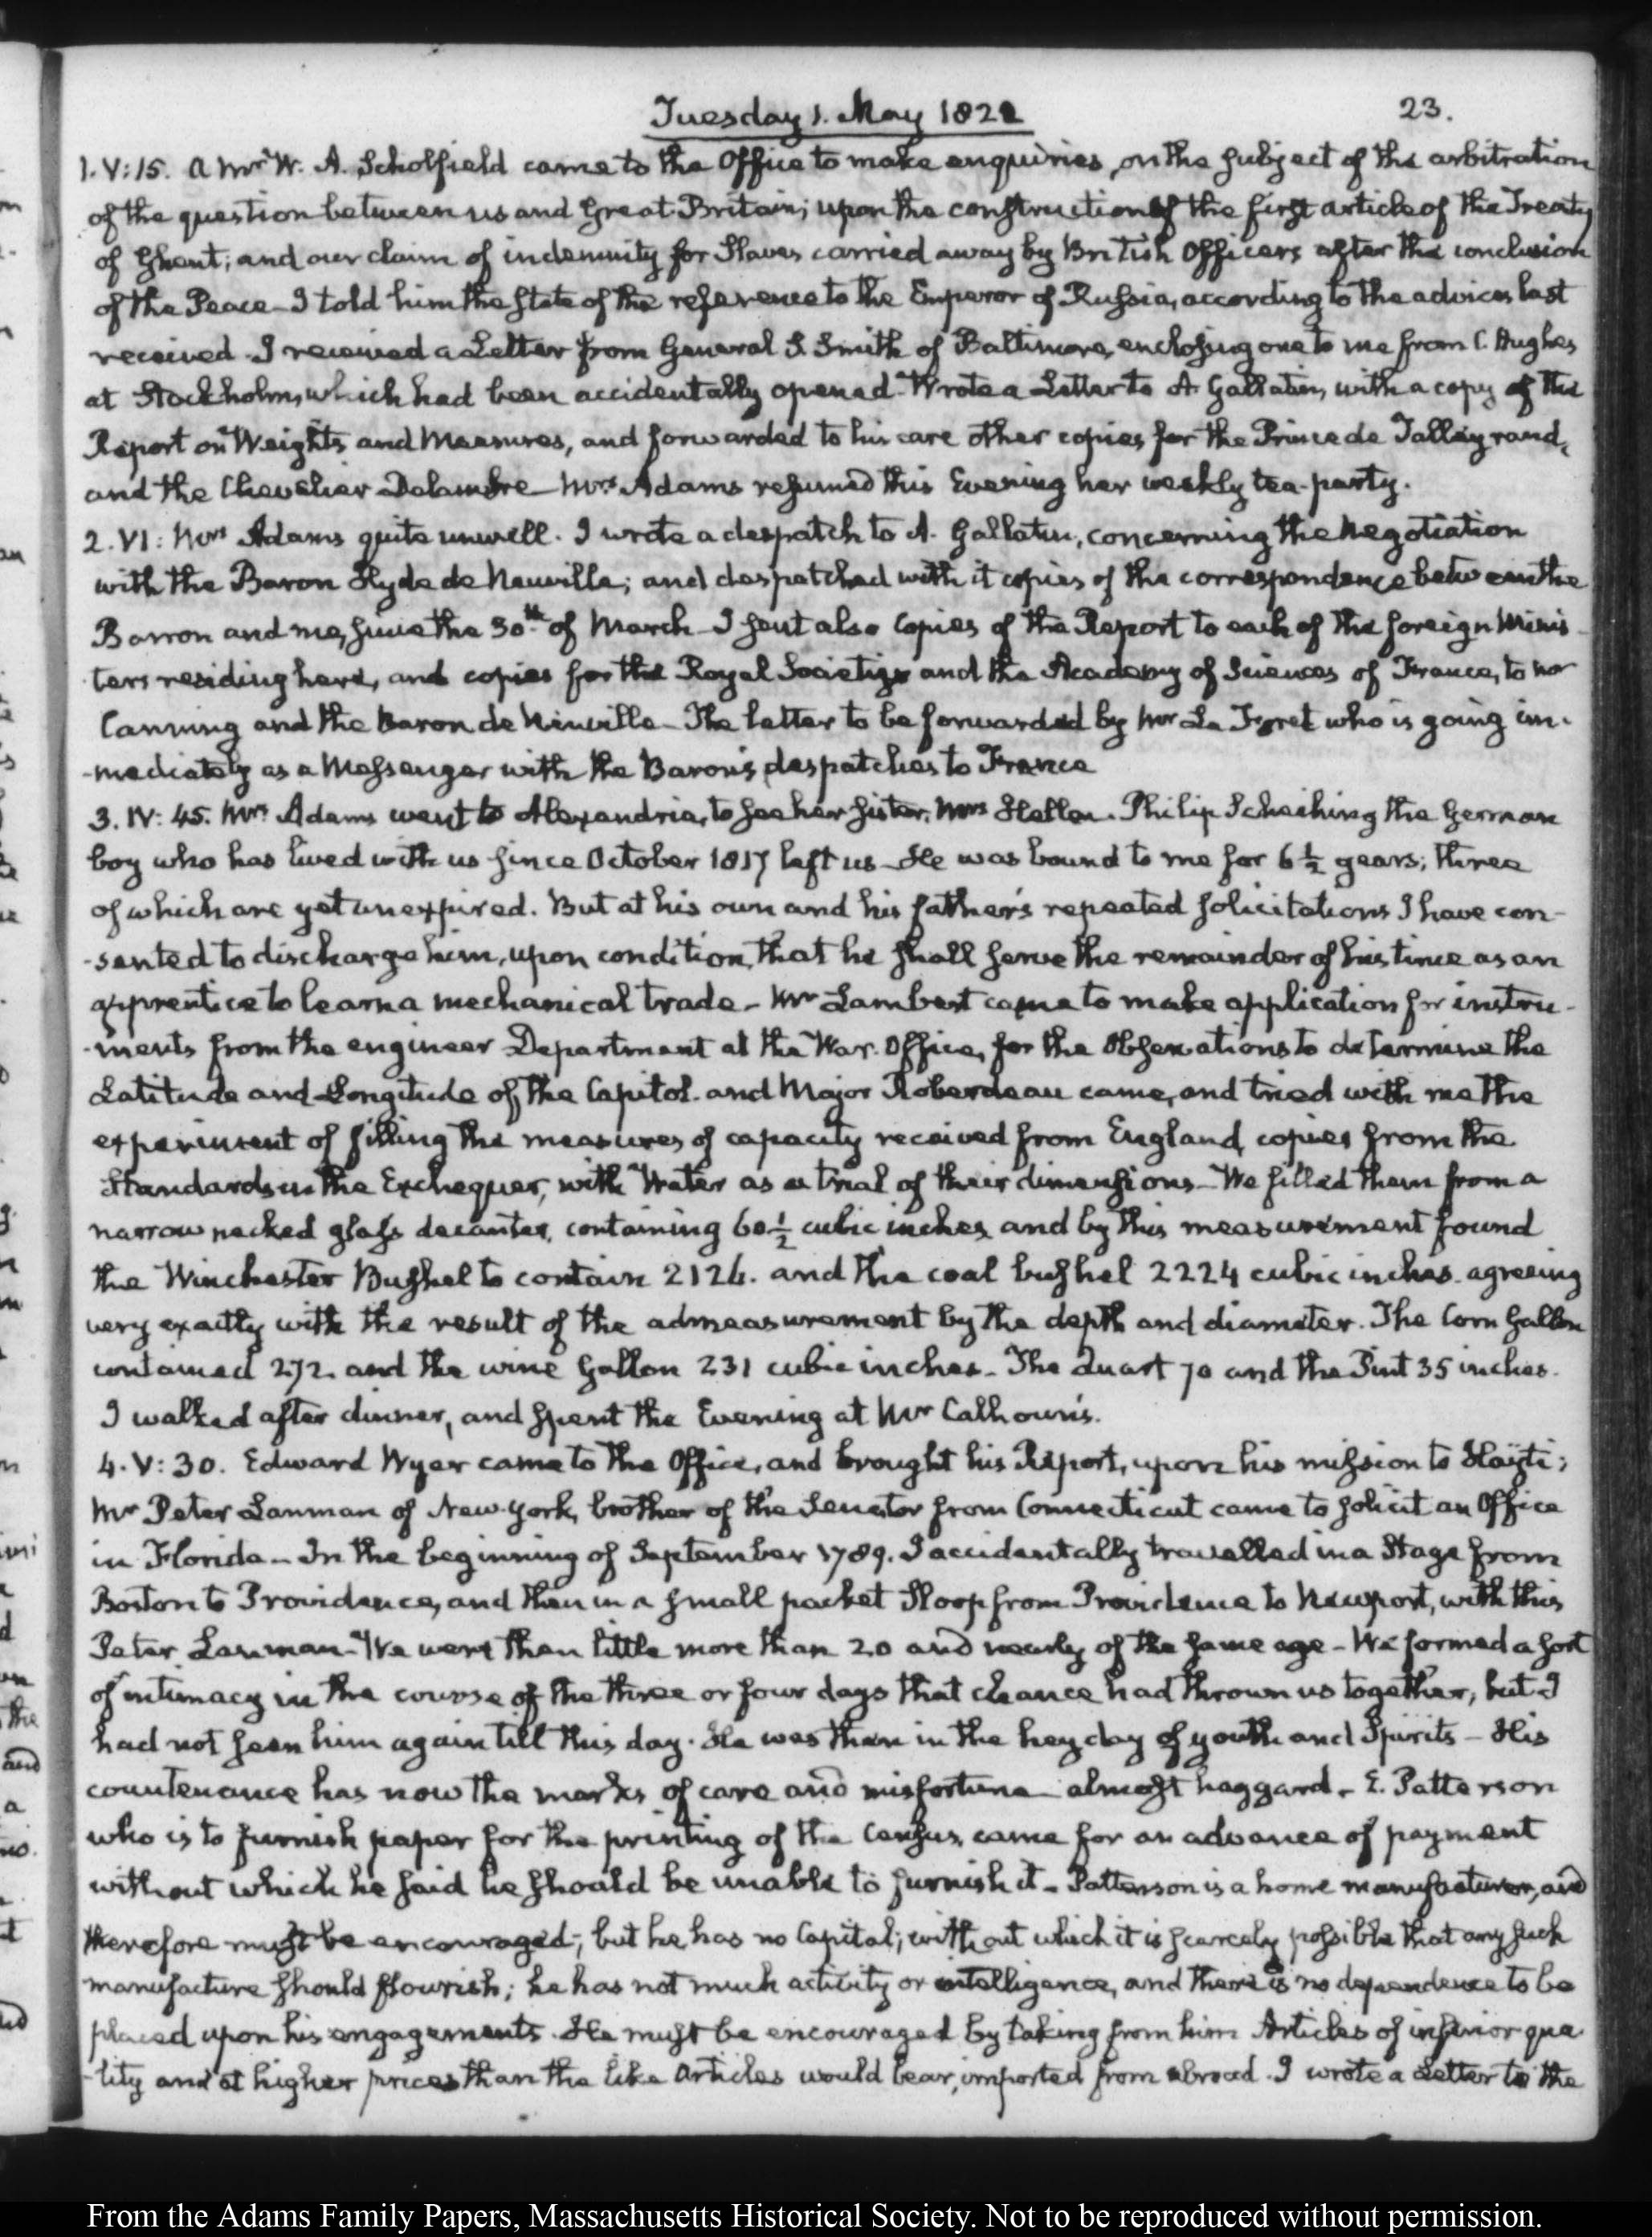 Tuesday 1. May 1821
23.
1. V:15. A Mr W. A. Scholfield came to the Office to make enquiries, on the subject of the arbitration
of the question between us and Great-Britain; upon the construction of the first article of the Treaty
of Ghent; and our claim of indemnity for Slaves carried away by British Officers after the conclusion
of the Peace – I told him the state of the reference to the Emperor of Russia, according to the advices last
received. I received a Letter from General S. Smith of Baltimore, enclosing one to me from C. Hughes
at Stockholm, which had been accidentally opened – Wrote a Letter to A. Gallatin, with a copy of the
Report on Weights and Measures, and forwarded to his care other copies for the Prince de Talleyrand,
and the Chevalier Delambre – Mrs. Adams resumed this Evening her weekly tea-party.
2. VI: Mrs Adams quite unwell. I wrote a despatch to A. Gallatin, concerning the Negotiation
with the Baron Hyde de Neuville; and despatched with it copies of the correspondence between the
Barron and me, since the 30th. of March – I sent also Copies of the Report to each of the foreign Minis-
ters residing here, and copies for the Royal Society and the Academy of Sciences of France, to Mr
Canning and the Baron de Neuville – The latter to be forwarded by Mr La Forret who is going im-
-mediately as a Messenger with the Baron's despatches to France
3. IV: 45. Mrs Adams went to Alexandria, to see her sister, Mrs Hellen. Philip Scheihing the German
boy who has lived with us since October 1817 left us – He was bound to me for 6 1/2 years; three
of which are yet unexpired. But at his own and his father's repeated solicitations I have con-
-sented to discharge him, upon condition, that he shall serve the remainder of his time as an
apprentice to learn a mechanical trade – Mr Lambert came to make application for instru-
-ments from the engineer Department at the War-Office, for the Observations to determine the
Latitude and Longitude of the Capitol. and Major Roberdeau came, and tried with me the
experiment of filling the measures of capacity received from England, copies from the
Standards in the Exchequer, with Water as a trial of their dimensions – We filled them from a
narrow necked glass decanter, containing 60 1/2 cubic inches, and by this measurement found
the Winchester Bushel to contain 2124. and the coal bushel 2224 cubic inches. agreeing
very exactly with the result of the admeasurement by the depth and diameter. The Corn Gallon
contained 272. and the wine Gallon 231 cubic inches – The Quart 70 and the Pint 35 inches.
I walked after dinner, and spent the Evening at Mr Calhoun's.
4. V: 30. Edward Wyer came to the Office, and brought his Report, upon his mission to Hayti;
Mr Peter Lanman of New-York, brother of the Senator from Connecticut came to solicit an Office
in Florida – In the beginning of September 1789. I accidentally travelled in a Stage from
Boston to Providence, and then in a small packet Sloop from Providence to Newport, with this
Peter Lanman – We were then little more than 20 and nearly of the same age – We formed a sort
of intimacy in the course of the three or four days that chance had thrown us together, but I
had not seen him again till this day. He was then in the hey day of youth and Spirits – His
countenance has now the marks of care and misfortune – almost haggard – E. Patterson
who is to furnish paper for the printing of the Census, came for an advance of payment
without which he said he should be unable to furnish it – Patterson is a home manufacturer, and
therefore must be encouraged; but he has no Capital; without which it is scarcely possible that any such
manufacture should flourish; he has not much activity or intelligence, and there is no dependence to be
placed upon his engagements. He must be encouraged by taking from him Articles of inferior qua-
-lity and at higher prices than the like Articles would bear, imported from abroad. I wrote a Letter to the
From the Adams Family Papers, Massachusetts Historical Society. Not to be reproduced without permission.